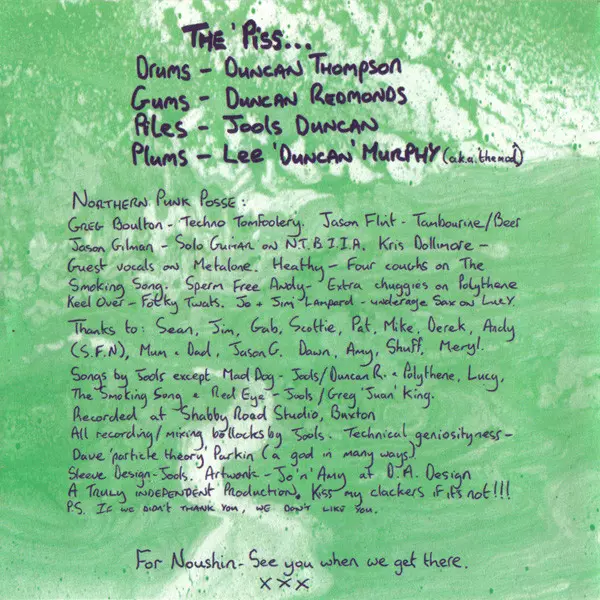 THE 'PISS...
DRUMS - DUNCAN THOMPSON
GUMS - DUNCAN REDMONDS
PILES - JOOLS DUNCAN
PLUMS - LEE 'DUNCAN' MURPHY (a.k.a. 'themod')
NORTHERN PUNK POSSE:
GREG BOULTON - TECHNO TOMFOOLERY. JASON FLINT - TAMBOURINE/BEER
JASON GILMAN - SOLO GUITAR ON N.T.B.I.I.A. KRIS DOLLIMORE -
GUEST VOCALS ON METALONE. HEATHY - FOUR COUGHS ON THE
SMOKING SONG. SPERM FREE ANDY - EXTRA CHUGGIES ON POLYTHENE
KEEL OVER - FOLKY TWATS. JO + JIM LAMPARD - UNDERAGE SAX ON LUCY.
THANKS TO: SEAN, JIM, GAB, SCOTTIE, PAT, MIKE, DEREK, ANDY
(S.F.N), MUM + DAD, JASON G. DAWN, AMY, SHUFF, MERYL.
SONGS BY JOOLS EXCEPT MAD DOG - JOOLS/DUNCAN R. + POLYTHENE, LUCY,
THE SMOKING SONG + RED EYE - JOOLS/GREG 'JUAN' KING.
RECORDED AT SHABBY ROAD STUDIO, BUXTON
ALL RECORDING/MIXING BOLLOCKS BY JOOLS. TECHNICAL GENIOSITYNESS -
DAVE 'PARTICLE THEORY' PARKIN (A GOD IN MANY WAYS)
SLEEVE DESIGN - JOOLS. ARTWORK - JO 'N' AMY AT D.A. DESIGN
A TRULY INDEPENDENT PRODUCTION. KISS MY CLACKERS IF IT'S NOT!!!
P.S. IF WE DIDN'T THANK YOU, WE DON'T LIKE YOU.
FOR NOUSHIN - SEE YOU WHEN WE GET THERE.
XXX